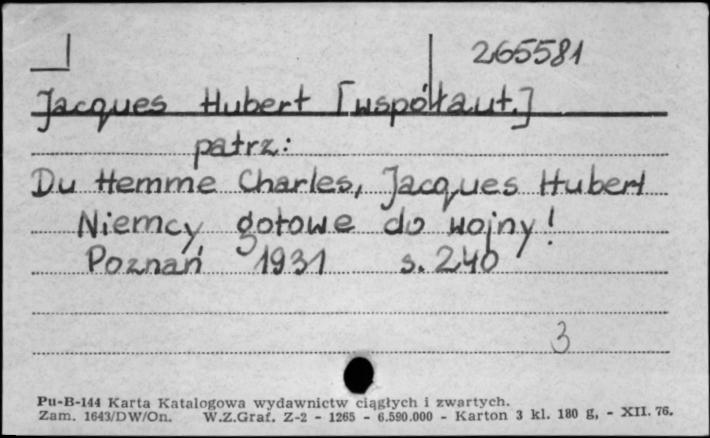 265581
Jacques Hubert [współaut.]
patrz:
Du Hemme Charles, Jacques Hubert
Niemcy gotowe do wojny!
Poznań 1931 s. 240
3
Pu-B-144 Karta Katalogowa wydawnictw ciągłych i zwartych.
Zam. 1643/DW/On. W.Z.Graf. Z-2 - 1265 - 6.590.000 - Karton 3 kl. 180 g, - XII. 76.